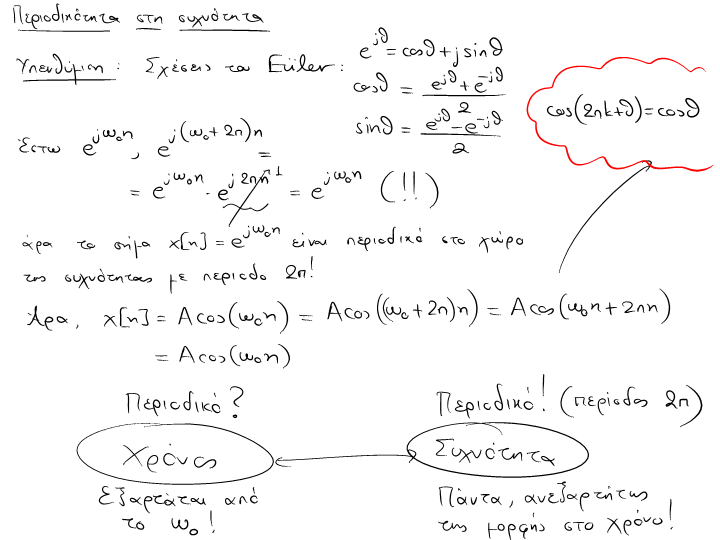 Περιοδικότητα στη συχνότητα
Υπενθύμιση : Σχέσεις του Euler : e^{jθ} = cosθ + j sinθ
cosθ = \frac{e^{jθ} + e^{-jθ}}{2}
sinθ = \frac{e^{jθ} - e^{-jθ}}{2}
cos(2πk+θ) = cosθ
Έστω e^{jω₀n}, e^{j(ω₀+2π)n} =
= e^{jω₀n} · e^{j2πn} 1 = e^{jω₀n} (!!)
άρα το σήμα x[n] = e^{jω₀n} είναι περιοδικό στο χώρο
της συχνότητας με περίοδο 2π!
Άρα, x[n] = A cos(ω₀n) = A cos((ω₀+2π)n) = A cos(ω₀n + 2πn)
= A cos(ω₀n)
Περιοδικό? Περιοδικό! (περίοδος 2π)
Χρόνος Συχνότητα
Εξαρτάται από Πάντα, ανεξαρτήτως
το ω₀! της μορφής στο χρόνο!